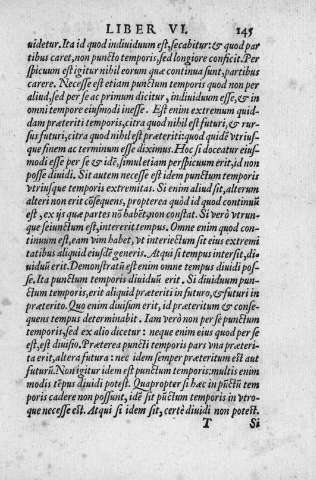 LIBER VI. 145
uidetur. Ita id quod indiuiduum est, secabitur: & quod par
tibus caret, non puncto temporis, sed longiore conficit. Per
spicuum est igitur nihil eorum quæ continua sunt, partibus
carere. Necesse est etiam punctum temporis quod non per
aliud, sed per se ac primum dicitur, indiuiduum esse, & in
omni tempore eiusmodi inesse. Est enim extremum quid
dam præteriti temporis, citra quod nihil est futuri, & rur
sus futuri, citra quod nihil est præteriti: quod quidē vtrius
que finem ac terminum esse diximus. Hoc si doceatur eius
modi esse per se & idē, simul etiam perspicuum erit, id non
posse diuidi. Sit autem necesse est idem punctum temporis
vtriusque temporis extremitas. Si enim aliud sit, alterum
alteri non erit cōsequens, propterea quòd id quod continuū
est, ex ijs quæ partes nō habēt, non constat. Si verò vtrun
que seiunctum est, intererit tempus. Omne enim quod con
tinuum est, eam vim habet, vt interiectum sit eius extremi
tatibus aliquid eiusdē generis. Atqui si tempus intersit, di
uiduū erit. Demonstratū est enim omne tempus diuidi pos
se. Ita punctum temporis diuiduū erit. Si diuiduum pun
ctum temporis, erit aliquid præteriti in futuro, & futuri in
præterito. Quo enim diuisum erit, id præteritum & conse
quens tempus determinabit. Iam verò non per se punctum
temporis, sed ex alio dicetur: neque enim eius quod per se
est, est diuisio. Præterea puncti temporis pars vna præteri
ta erit, altera futura: nec idem semper præteritum est aut
futurū. Non igitur idem est punctum temporis: multis enim
modis tēpus diuidi potest. Quapropter si hæc in pūctū tem
poris cadere non possunt, idē sit pūctum temporis in vtro
que necesse est. Atqui si idem sit, certè diuidi non potest.
T Si